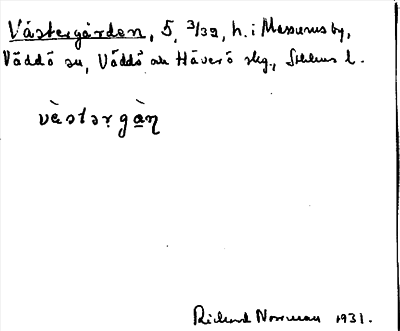 Västergården, 5, 3/32, h. i Massumsby,
Väddö sn, Väddö och Häverö skg., Sthlms l.
vὲstərgὰṇ
Richard Norrman 1931.